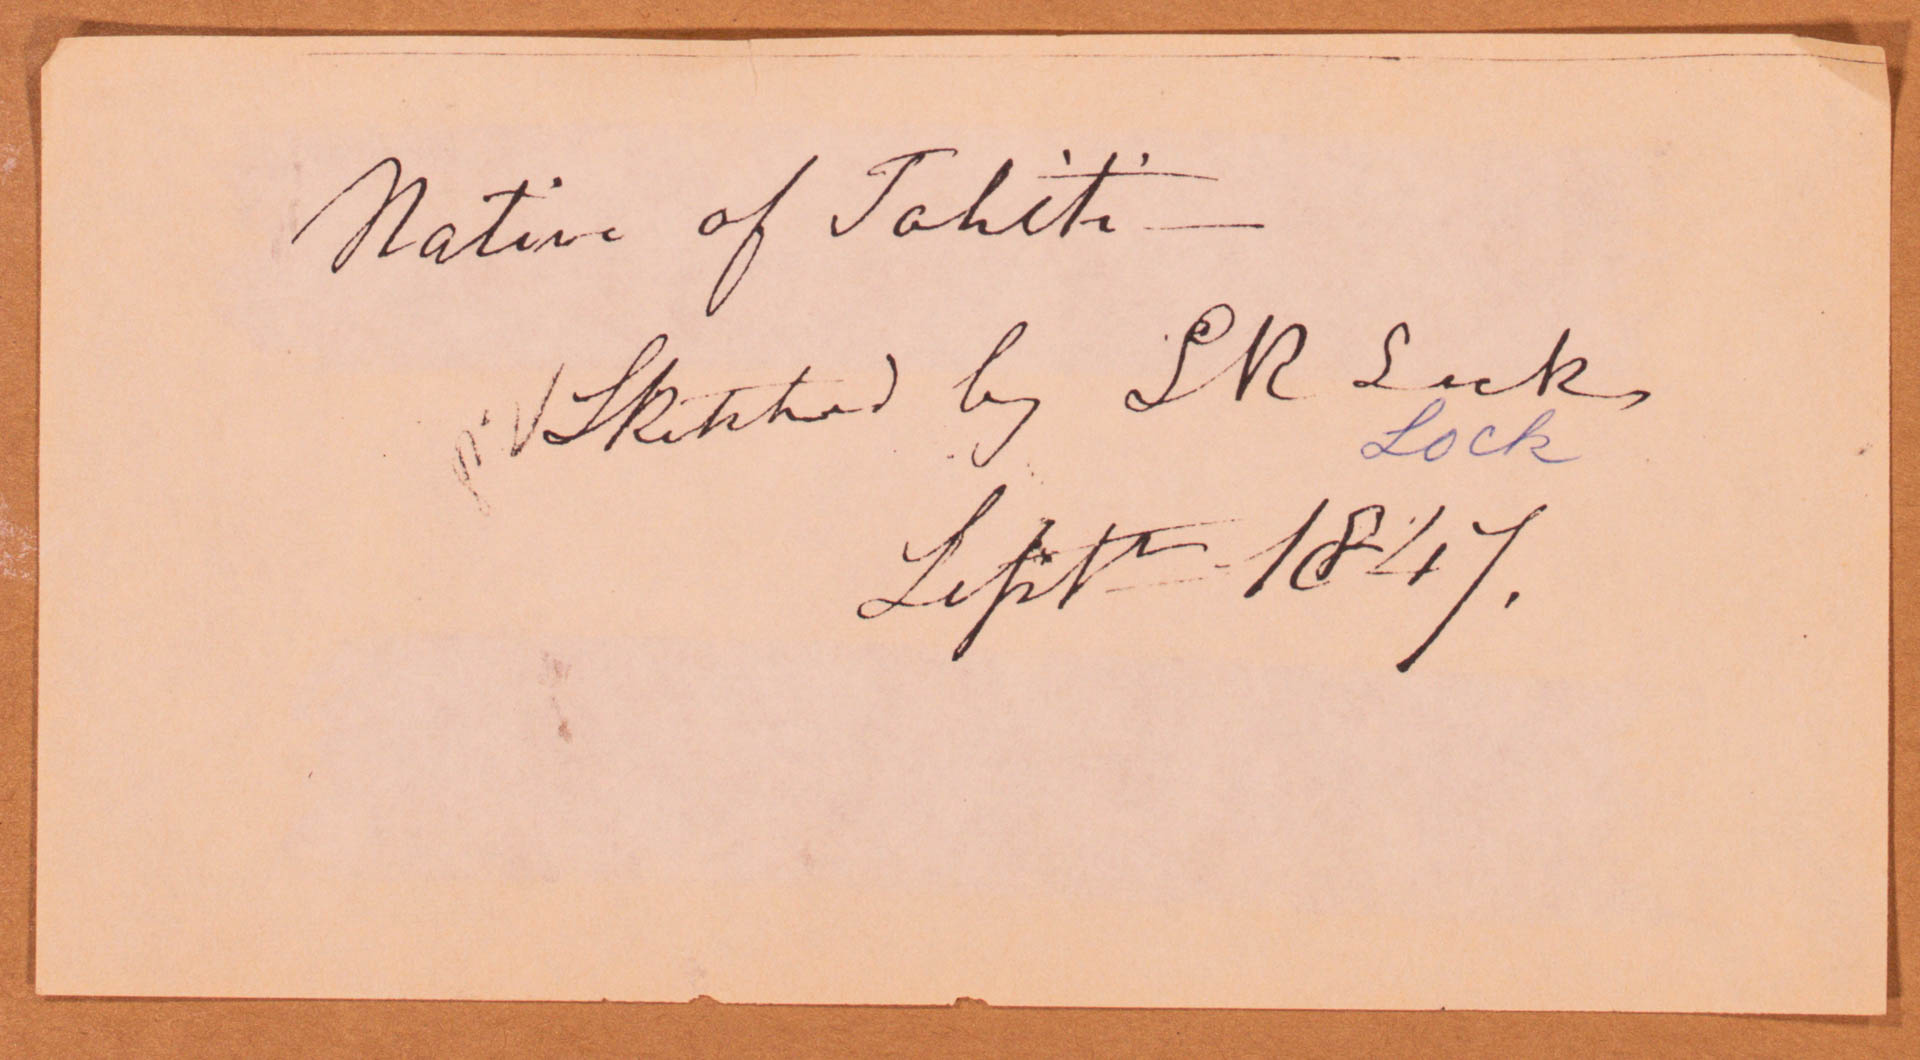 Native of Tahiti —
Sketched by S R Lock
Lock
Septr 1847.